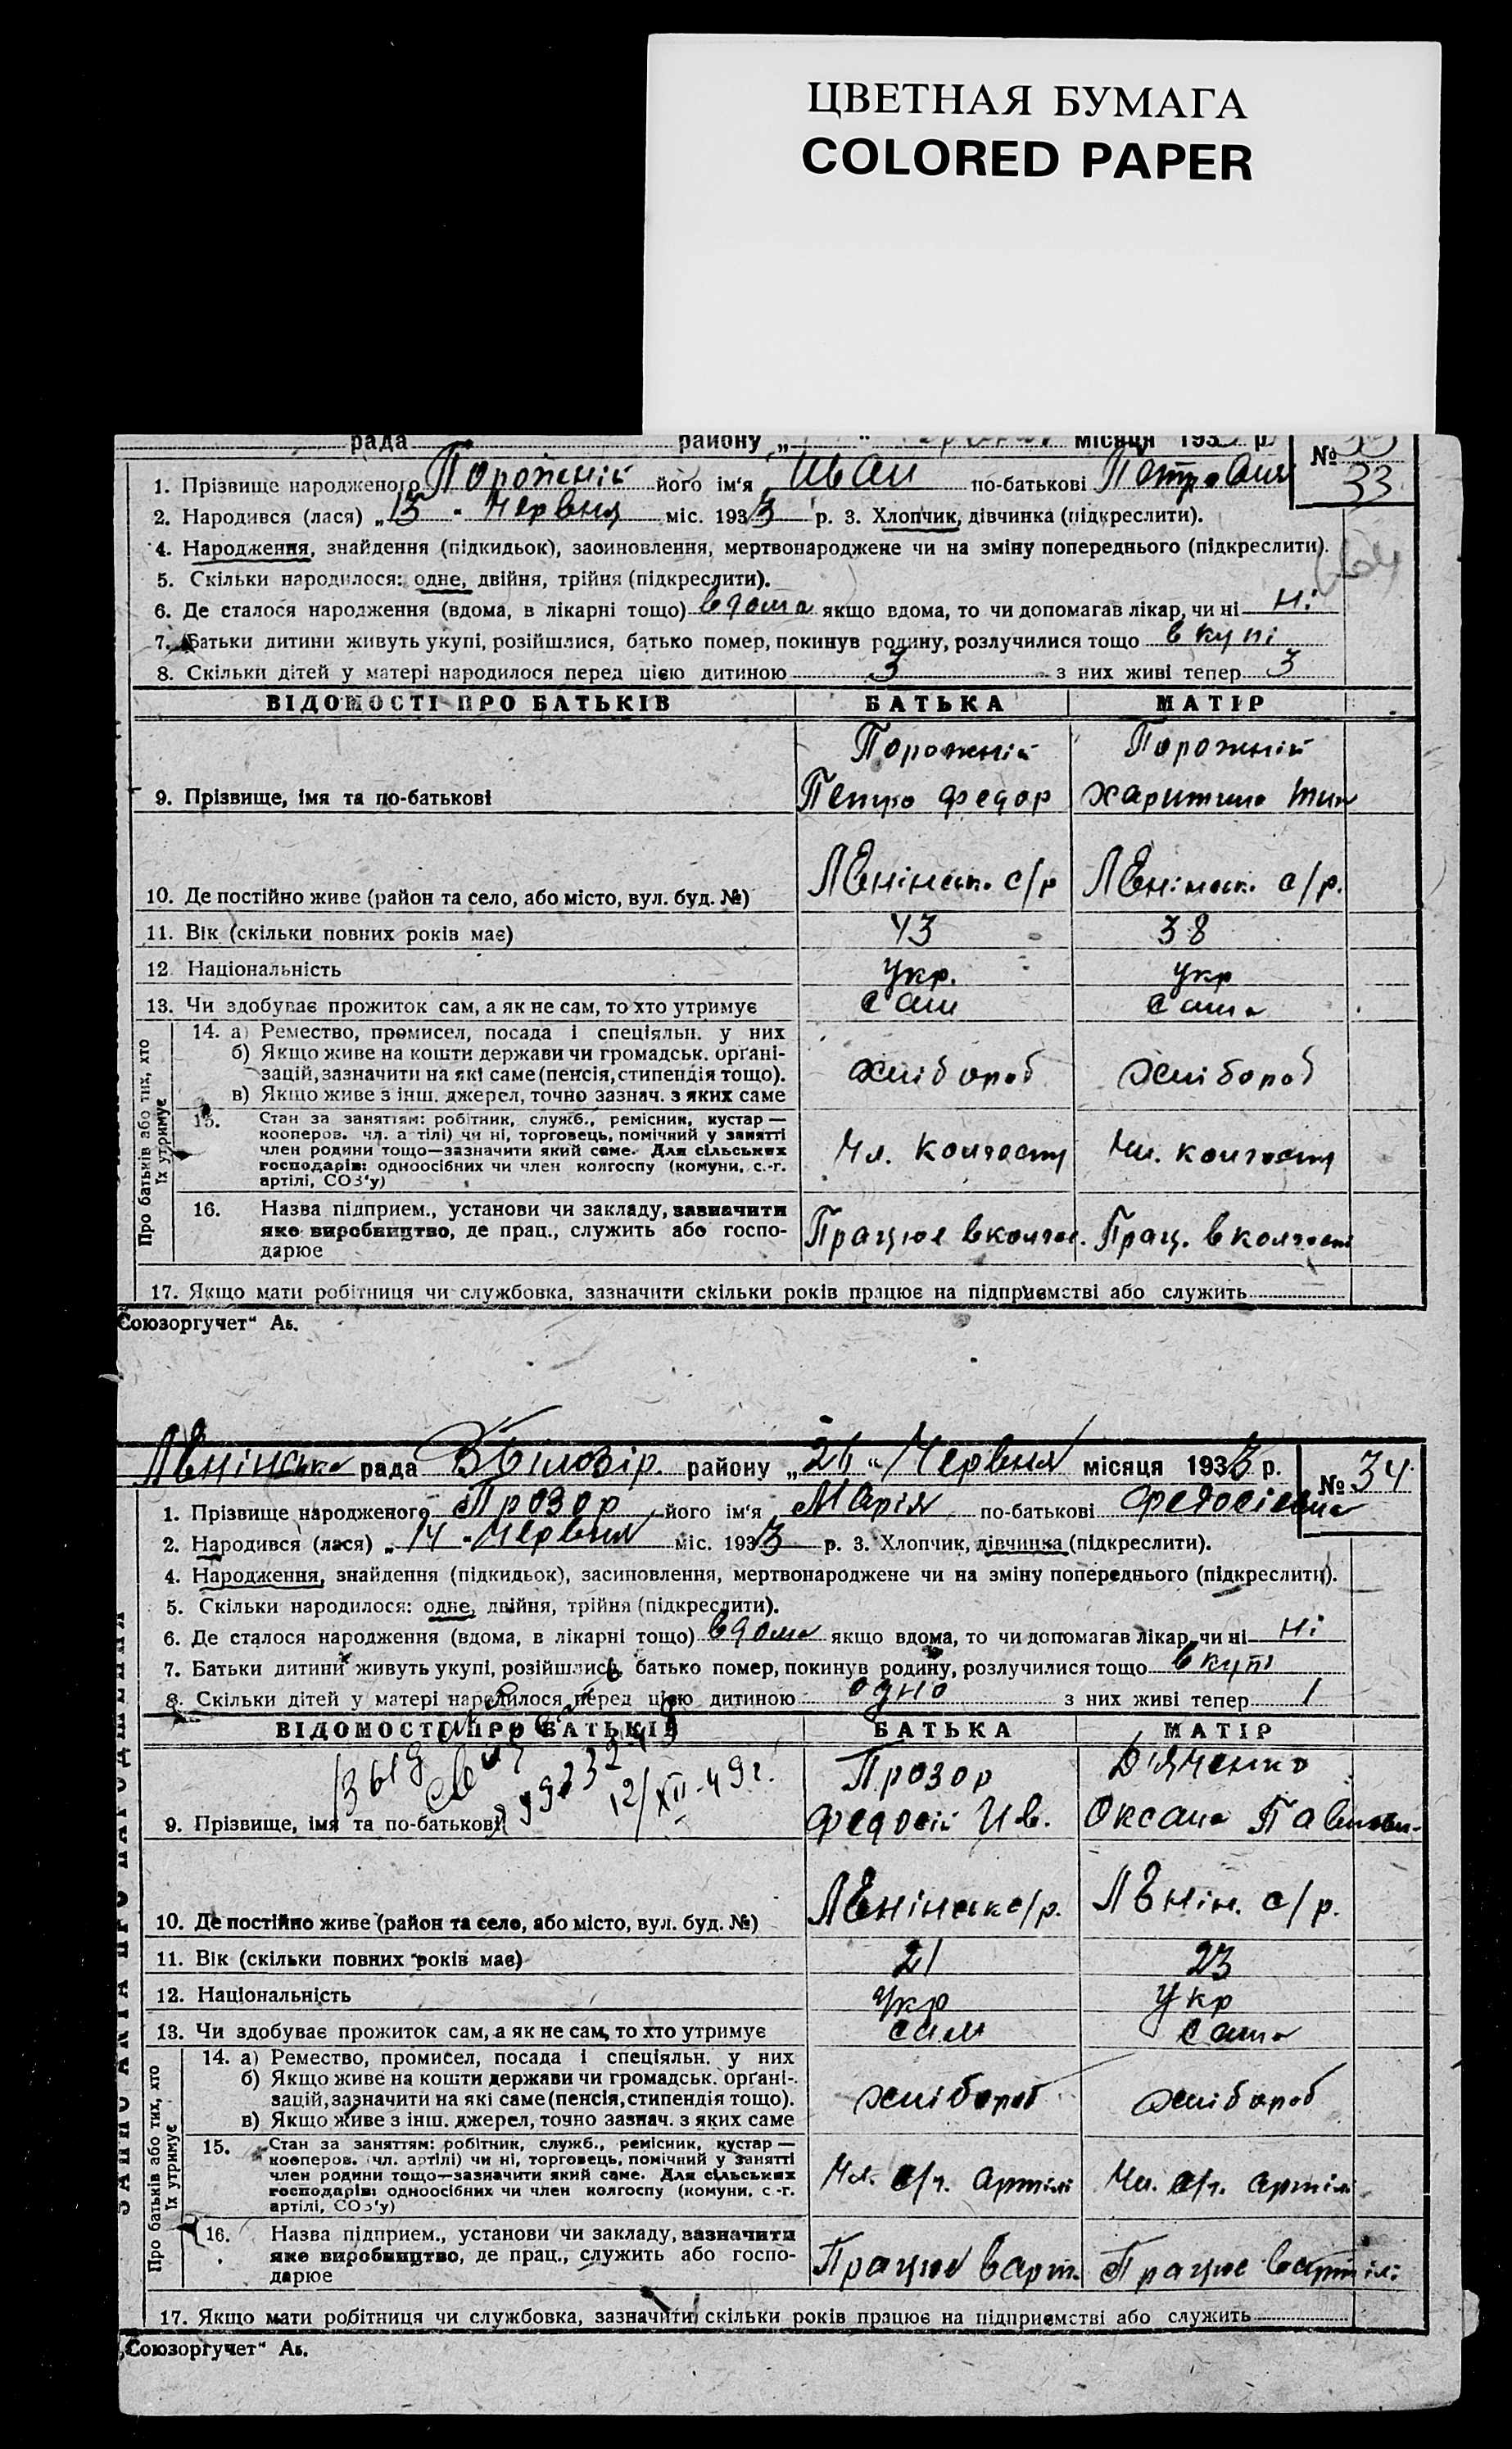 ЦВЕТНАЯ БУМАГА
COLORED PAPER
рада району „ “ місяця 193 р. №
33
1. Прізвище народженого Порожній його ім'я Иван по-батькові Петрович
2. Народився (лася) „13 “ Червня міс. 1933 р. 3. Хлопчик, дівчинка (підкреслити).
4. Народження, знайдення (підкидьок), засиновлення, мертвонароджене чи на зміну попереднього (підкреслити).
5. Скільки народилося: одне, двійня, трійня (підкреслити).
6. Де сталося народження (вдома, в лікарні тощо) вдома якщо вдома, то чи допомагав лікар, чи ні Ні
7. Батьки дитини живуть укупі, розійшлися, батько помер, покинув родину, розлучилися тощо вкупі
8. Скільки дітей у матері народилося перед цією дитиною 3 з них живі тепер 3
ВІДОМОСТІ ПРО БАТЬКІВ БАТЬКА МАТІР
Порожній Порожній
9. Прізвище, імя та по-батькові Петро Федор Харитина Тим
10. Де постійно живе (район та село, або місто, вул. буд. №) с/р с/р.
11. Вік (скільки повних років має) 43 38
12 Національність Укр. Укр
13. Чи здобуває прожиток сам, а як не сам, то хто утримує сам сама
Про батьків або тих, хто їх утримує
14. а) Ремество, промисел, посада і спеціяльн. у них
б) Якщо живе на кошти держави чи громадськ. орґані-
зацій, зазначити на які саме (пенсія, стипендія тощо). хлібороб хлібороб
в) Якщо живе з інш. джерел, точно зазнач. з яких саме
15. Стан за заняттям: робітник, служб., ремісник, кустар —
кооперов. чл. артілі) чи ні, торговець, помічний у занятті
член родини тощо—зазначити який саме. Для сільських Чл. колгоспу Чл. колгоспу
господарів: одноосібних чи член колгоспу (комуни, с.-г.
артілі, СОЗ'у)
16. Назва підприєм., установи чи закладу, зазначити
яке виробництво, де прац., служить або госпо- Працює в колгос. Прац. в колгоспі
дарює
17. Якщо мати робітниця чи службовка, зазначити скільки років працює на підприємстві або служить
Союзоргучет“ Аь.
рада району „26“ Червня місяця 1933 р. № 34
1. Прізвище народженого Прозор його ім'я Марія по-батькові Федосієвна
2. Народився (лася) „14 “ Червня міс. 1933 р. 3. Хлопчик, дівчинка (підкреслити).
4. Народження, знайдення (підкидьок), засиновлення, мертвонароджене чи на зміну попереднього (підкреслити).
5. Скільки народилося: одне, двійня, трійня (підкреслити).
6. Де сталося народження (вдома, в лікарні тощо) вдома якщо вдома, то чи допомагав лікар, чи ні Ні
7. Батьки дитини живуть укупі, розійшлись, батько помер, покинув родину, розлучилися тощо вкупі
8. Скільки дітей у матері народилося перед цією дитиною одно з них живі тепер 1
ВІДОМОСТІ ПРО БАТЬКІВ БАТЬКА МАТІР
12/XII-49г. Прозор Дяченко
9. Прізвище, імя та по-батькові Федосій Ив. Оксана
10. Де постійно живе (район та село, або місто, вул. буд. №) с/р. с/р.
11. Вік (скільки повних років має) 21 23
12. Національність Укр Укр
13. Чи здобуває прожиток сам, а як не сам, то хто утримує сам сама
ЗАПИС АКТА ПРО НАРОДЖЕННЯ
Про батьків або тих, хто їх утримує
14. а) Ремество, промисел, посада і спеціяльн. у них
б) Якщо живе на кошти держави чи громадськ. орґані-
зацій, зазначити на які саме (пенсія, стипендія тощо). хлібороб хлібороб
в) Якщо живе з інш. джерел, точно зазнач. з яких саме
15. Стан за заняттям: робітник, служб., ремісник, кустар —
кооперов. чл. артілі) чи ні, торговець, помічний у занятті
член родини тощо—зазначити який саме. Для сільських Чл. с/г. артілі Чл. с/г. артілі
господарів: одноосібних чи член колгоспу (комуни, с.-г.
артілі, СОЗ'у)
16. Назва підприєм., установи чи закладу, зазначити
яке виробництво, де прац., служить або госпо- Працює в арт. Працює в артілі
дарює
17. Якщо мати робітниця чи службовка, зазначити скільки років працює на підприємстві або служить
„Союзоргучет“ Аь.